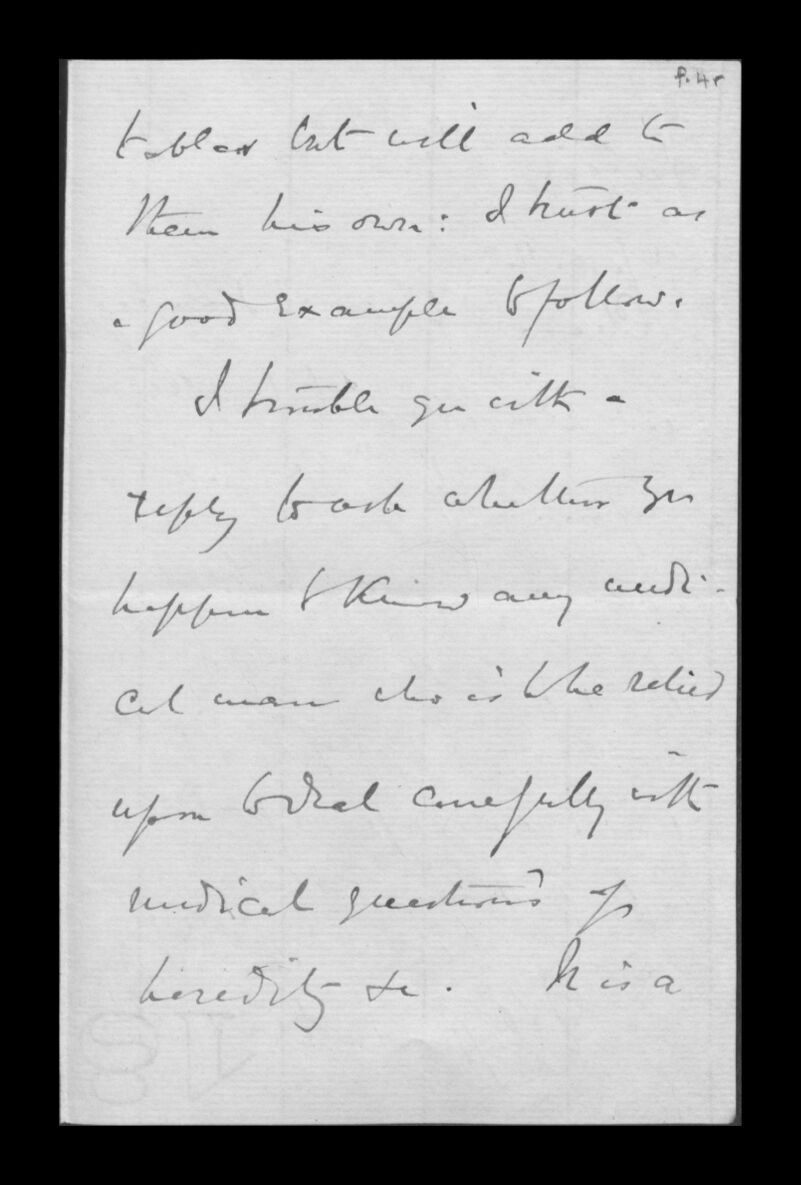 f. 4r
tables but will add to
them his own: I trust as
a good Example to follow.
I trouble you with a
reply to ask whether you
happen to know any medi-
cal man who is to be relied
upon to deal carefully with
medical questions of
heredity &c. It is a